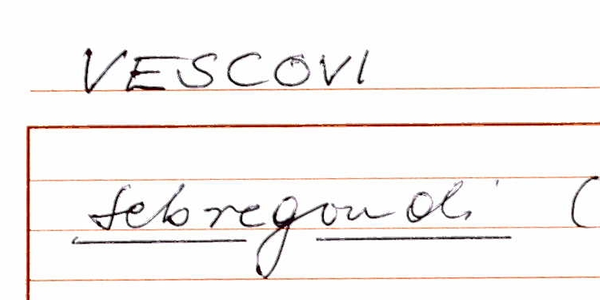 VESCOVI
Sebregondi (